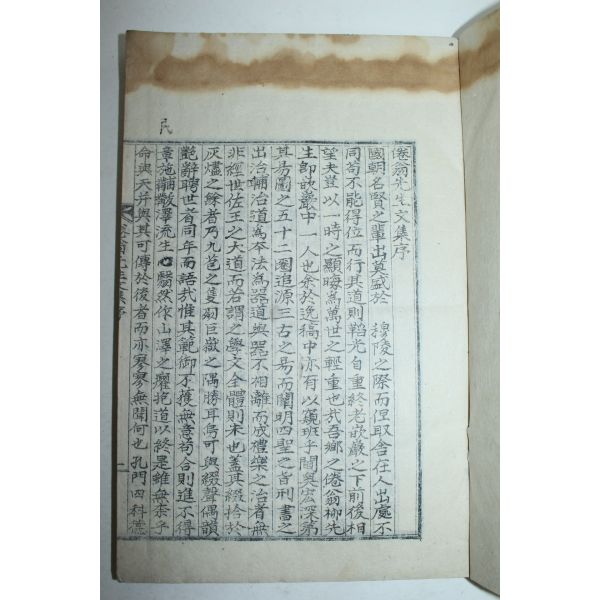 倦翁先生文集序
國朝名賢之輩出莫盛於 穆陵之際而但取舍在人出處不
同苟不能得位而行其道則韜光自重終老嵌巖之下前後相
望夫豈以一時之顯晦為萬世之輕重也哉吾鄉之倦翁柳先
生卽欿叢中一人也余於逸稿中亦有以窺班乎閫奧宏深第
其易圖之五十二圈追源三古之易而闡明四聖之旨刑書之
出治輔治道為本法為器道與器不相離而成禮樂之治者無
非經世佐王之大道而若謂之學文全體則末也盖其綴拾於
灰燼之餘者乃九苞之隻羽巨嶽之隅勝耳烏可與綴聲偶韻
艶辭騁世者同年而語哉惟其範御不獲無意苟合則進不得
章施黼黻澤流生心翳然作山澤之癯抱道以終是雖無柰乎
命與天幷與其可傳於後者而亦寥寥無聞何也 孔門四科德
倦翁先生文集序
一
民